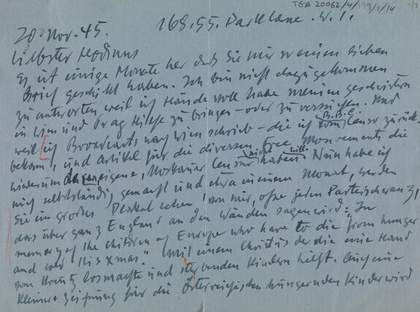 TGA 20062/4/
20. Nov. 45. 163. 55. Parklane. W. 1.
liebster Modinus
Es ist einige Monate her dass Sie mir einen lieben
Brief geschickt haben. Ich bin nicht dazugekommen
zu antworten weil ich Hände voll habe meinen geschwistern
in Wien und Prag Hilfe zu bringen - oder zu versuchen. Und
weil ich Broadcasts nach Wien schrieb - die ich vom B.B.C. zurück
bekam, und artikel für die diversen Free Monuments die
wiederum eigene, Moskauer haben will. Nun habe ich
mich selbständig gemacht und etwa in einem Monat, werden
Sie ein grosses Plakat sehen, von mir, ohne jeden Parteischwanz,
dass über ganz England an den Wänden sagen wird: In
memory of the children of Europe who have to die from hunger
and cold this Xmas." Mit einem Christus der die eine Hand
vom Kreuz losmacht und sterbenden Kindern hilft. Auch eine
kleine Zeichnung für die Österreichischen hungernden Kinder wird